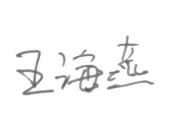 王海燕